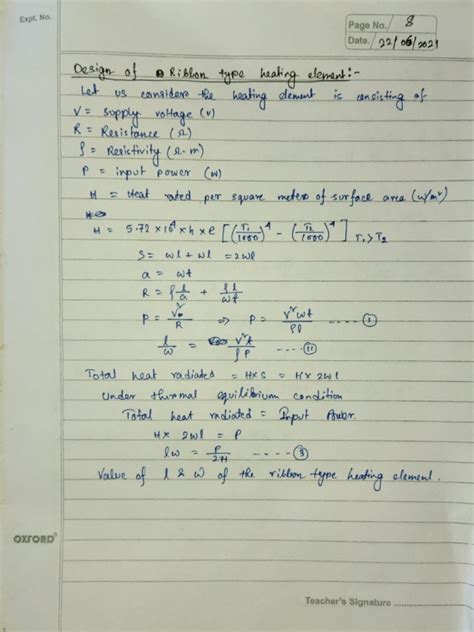 Expt. No.
Page No. 8
Date. 22/06/2021
Design of Ribbon type heating element:-
Let us considers the heating element is consisting of
V = supply voltage (v)
R = Resistance (Ω)
ρ = Resistivity (Ω-m)
P = input power (W)
H = Heat rated per square meters of surface area (w/m²)
H = 5.72 × 10⁴ × h × e [(T₁/1000)⁴ - (T₂/1000)⁴] T₁>T₂
S = wl + wl = 2wl
a = wt
R = ρ l/a + ρl/wt
P = V²/R ⇒ P = V²wt/ρl ----- ①
l/w = V²t/ρP ---- ⑪
Total heat radiated = H×S = H× 2wl
Under thermal equilibrium condition
Total heat radiated = Input Power.
H× 2wl = P
lw = P/2H ---- ③
Value of l & w of the ribbon type heating element.
OXFORD®
Teacher's Signature